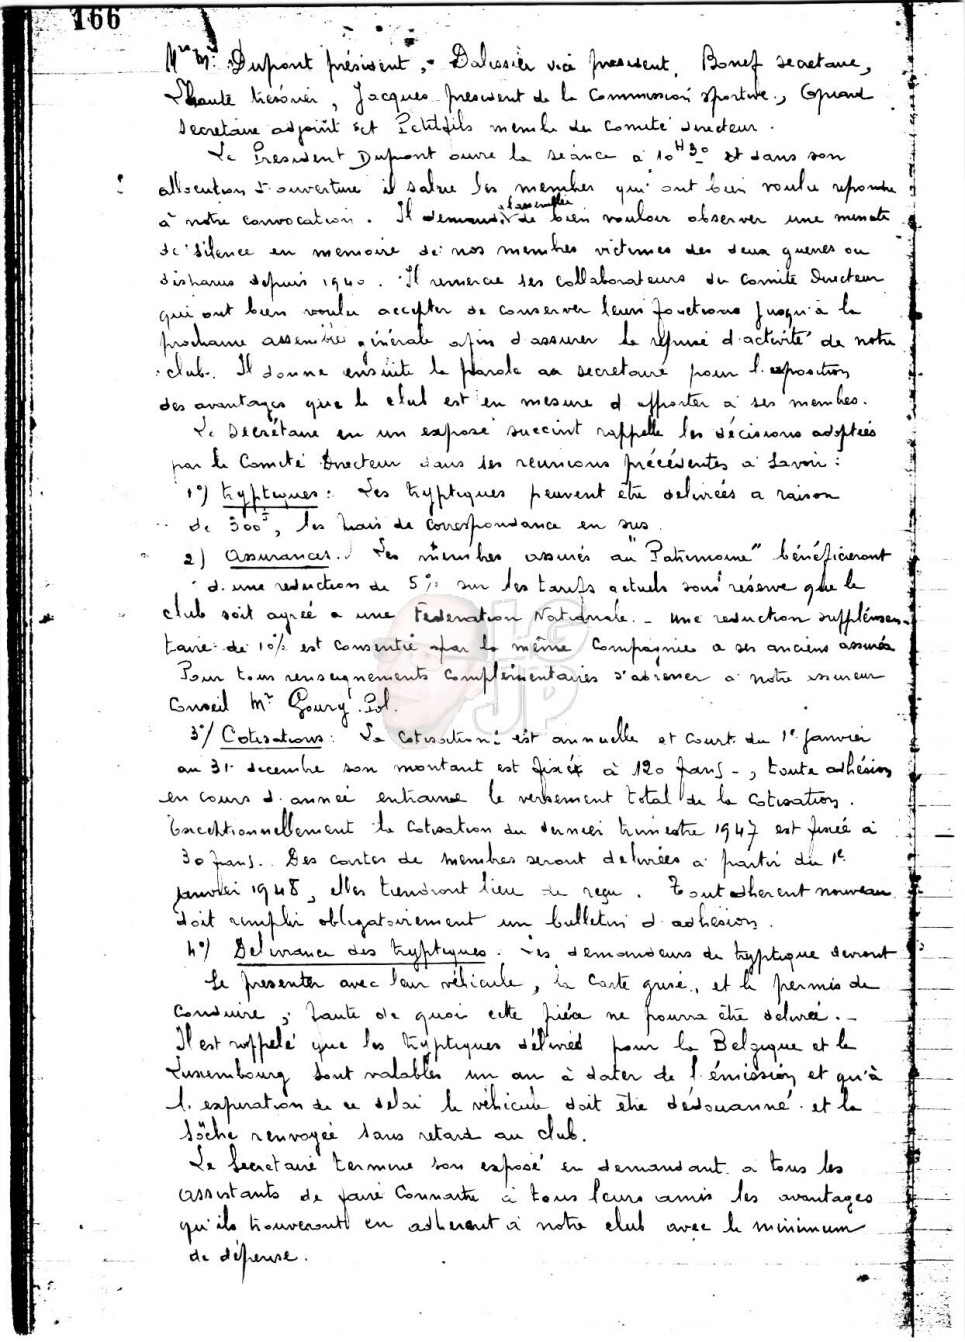 166
Mrs Mr Dupont président, - Dalissier vice president, Bonef secretaire,
Lhaute trésorier, Jacques president de la Commission sportive, Girard
Secretaire adjoint et Petitfils membre du Comité directeur.
Le President Dupont ouvre la séance à 10 H 30 et dans son
allocution d'ouverture il salue les membres qui ont bien voulu repondre
à notre convocation. Il demande à l'assemblée de bien vouloir observer une minute
de silence en memoire de nos membres victimes des deux guerres ou
disparus depuis 1940. Il remercie ses collaborateurs du Comité Directeur
qui ont bien voulu accepter de conserver leurs fonctions jusqu'à la
prochaine assemblée générale afin d'assurer la reprise d'activité de notre
club. Il donne ensuite la parole au secretaire pour l'exposition
des avantages que le club est en mesure d'apporter à ses membres.
Le Secrétaire en un exposé succint rappelle les décisions adoptées
par le Comité Directeur dans ses reunions précédentes a savoir:
1°) tryptiques: Les tryptiques peuvent être delivrés a raison
de 300 F, les frais de correspondance en sus.
2) assurances. Les membres assurés au "Patrimoine" bénéficieront
d'une reduction de 5% sur les tarifs actuels sous réserve que le
club soit agréé a une Federation Nationale. - une reduction supplémen-
taire de 10% est consentie par la même Compagnie a ses anciens assurés
Pour tous renseignements complémentaires s'adresser à notre assureur
Conseil Mr Goury Pol.
3°/ Cotisations: La cotisation est annuelle et court du 1e janvier
au 31 decembre son montant est fixé à 120 frans -, toute adhésion
en cours d'année entraine le versement total de la cotisation.
Exceptionnellement la cotisation du dernier trimestre 1947 est fixée à
30 frans. Des cartes de membres seront delivrées a partir du 1e
janvier 1948, elles tiendront lieu de reçu. Tout adherent nouveau
doit remplir obligatoirement un bulletin d'adhesion.
4°) Delivrance des tryptiques. Les demandeurs de tryptique devront
se presenter avec leur véhicule, la carte grise, et le permis de
conduire, faute de quoi cette pièce ne pourra être delivrée. -
Il est rappelé que les tryptiques délivrés pour la Belgique et le
Luxembourg sont valables un an à dater de l'émission et qu'à
l'expiration de ce delai le véhicule doit être dédouanné et la
sôche renvoyée sans retard au club.
Le Secretaire termine son exposé en demandant a tous les
assistants de faire connaitre à tous leurs amis les avantages
qu'ils trouveront en adherent à notre club avec le minimum
de dépense.
LG
JP